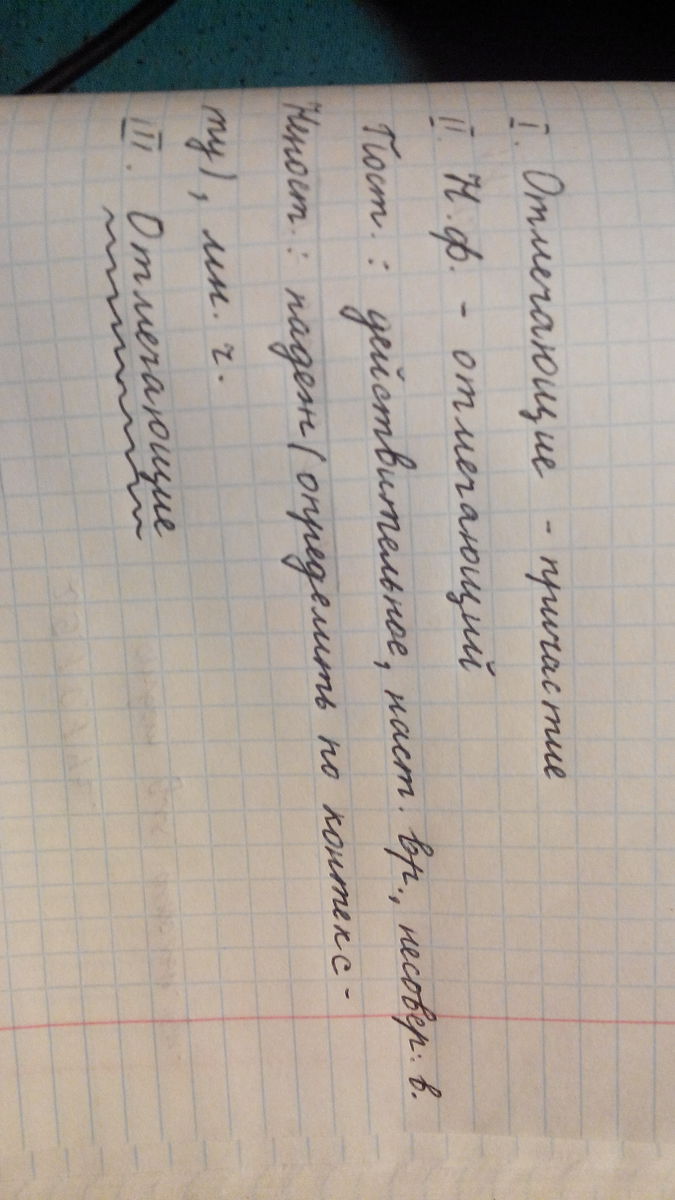 I. Отмечающие - причастие
II. Н.ф. - отмечающий
Пост.: действительное, наст. вр., несовер. в.
Непост.: падеж (определить по контекс-
ту), мн. ч.
III. Отмечающие